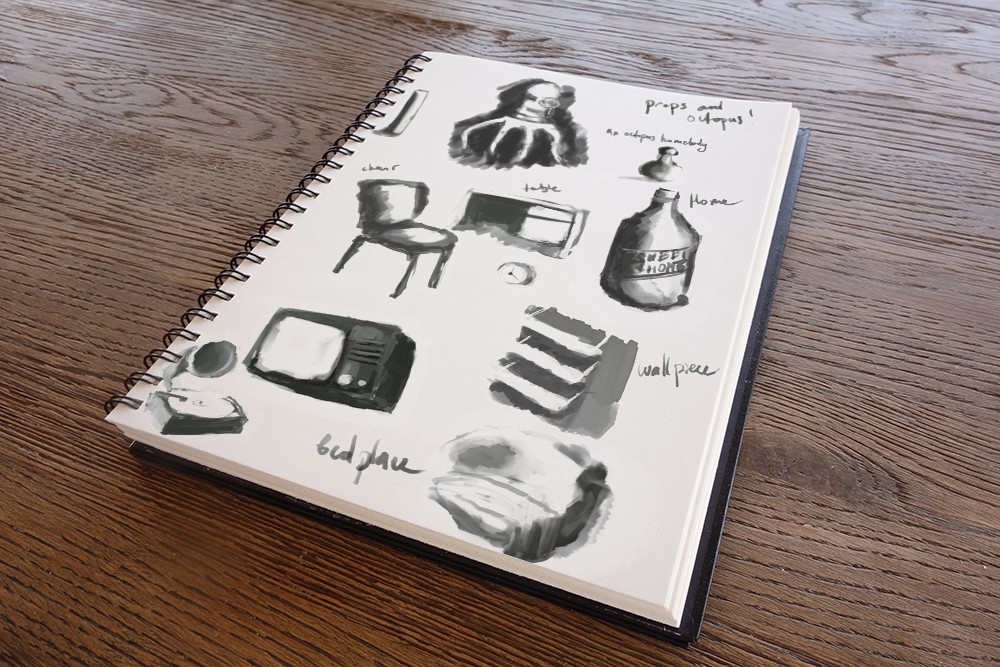 props and
octopus!
An octopus homebody
chair
table
Home
SWEET
HOME
wallpiece
bedplace